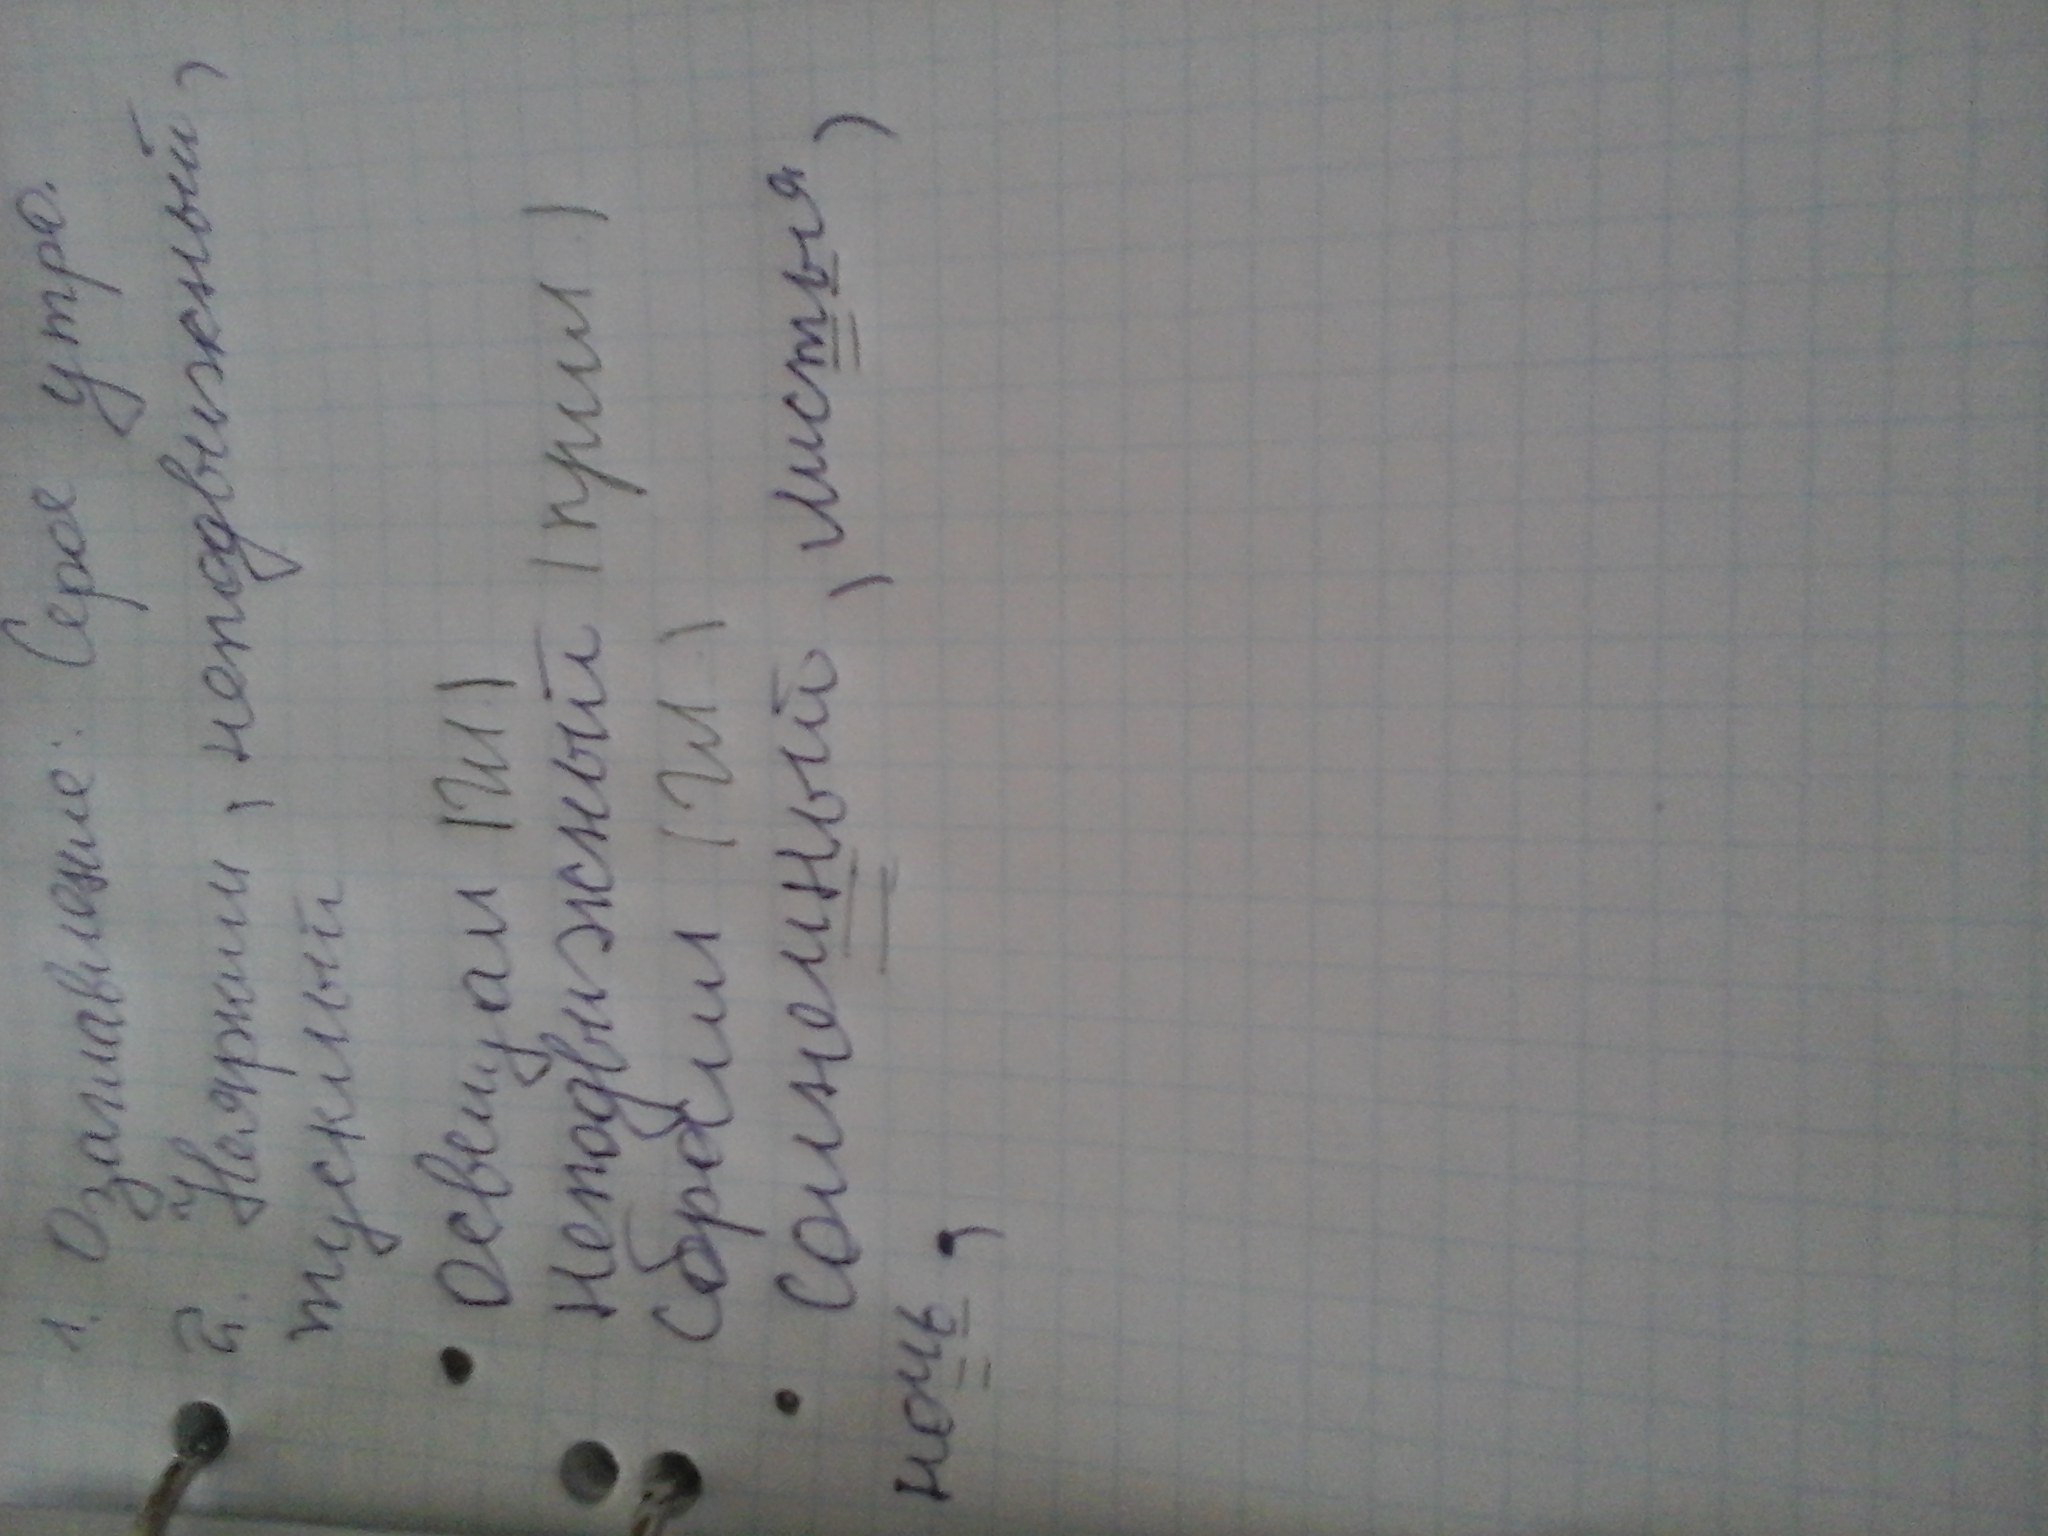 1. Озаглавление: Серое утро.
2. Неяркий, неподвижный,
тусклый
• Освещал (гл.)
Неподвижный (прил.)
Сбросил (гл.)
• Солнечный, листья,
ночь,